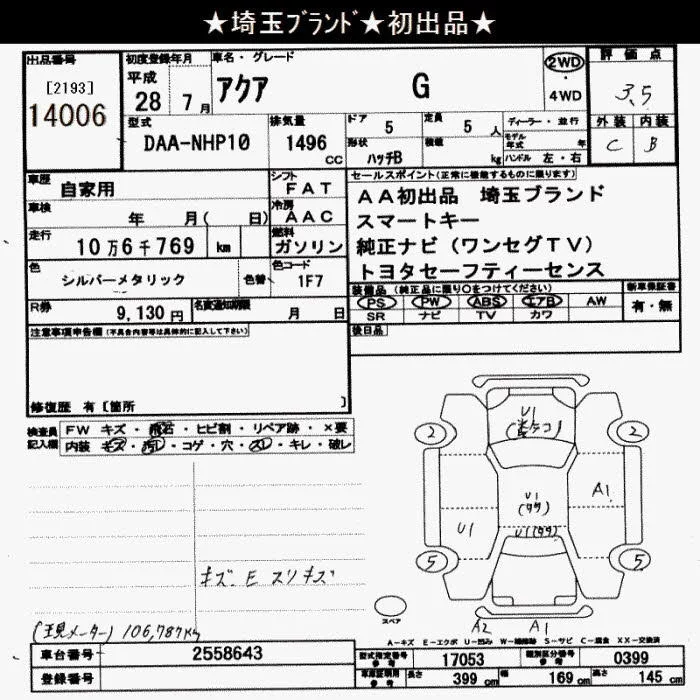 ★埼玉ﾌﾞﾗﾝﾄﾞ★初出品★
出品番号
[2193]
14006
初度登録年月
平成
28 7 月
車名・グレード
アクア G
2WD
・
4WD
評価点
3.5
外装 内装
C B
型式
DAA-NHP10
排気量
1496
CC
ドア 5
定員 5 人
形状 ハッチB
積載 kg
ディーラー・並行
モデル年式 年
ハンドル 左・右
車歴 自家用
車検 年 月( 日)
走行 10万6千769 km
色 シルバーメタリック 色替
シフト FAT
冷房 AAC
燃料 ガソリン
色コード 1F7
セールスポイント(正常に機能するものに限ります)
AA初出品 埼玉ブランド
スマートキー
純正ナビ(ワンセグTV)
トヨタセーフティーセンス
R券 9,130円 名変通知期限 月 日
装備品(純正品に限り○をつけてください)
PS PW ABS エアB AW
SR ナビ TV カワ
新車保証書
有・無
後日品
注意事項申告欄(不具合内容等は具体的に記入して下さい)
修復歴 有[箇所 ]
検査員記入欄
FW キズ・飛石・ヒビ割・リペア跡・×要
内装 キズ・汚レ・コゲ・穴・スレ・キレ・破レ
キズ E スリキズ
106,787km
U1
2 2
U1
A1
U1
5 5
スペア
A2 A1
A-キズ E-エクボ U-凹み W-補修跡 S-サビ C-腐食 XX-交換済
車台番号 2558643
登録番号
型式指定番号 参考 17053
類別区分番号 参考 0399
車庫証明用 参考 長さ 399 cm 幅 169 cm 高さ 145 cm